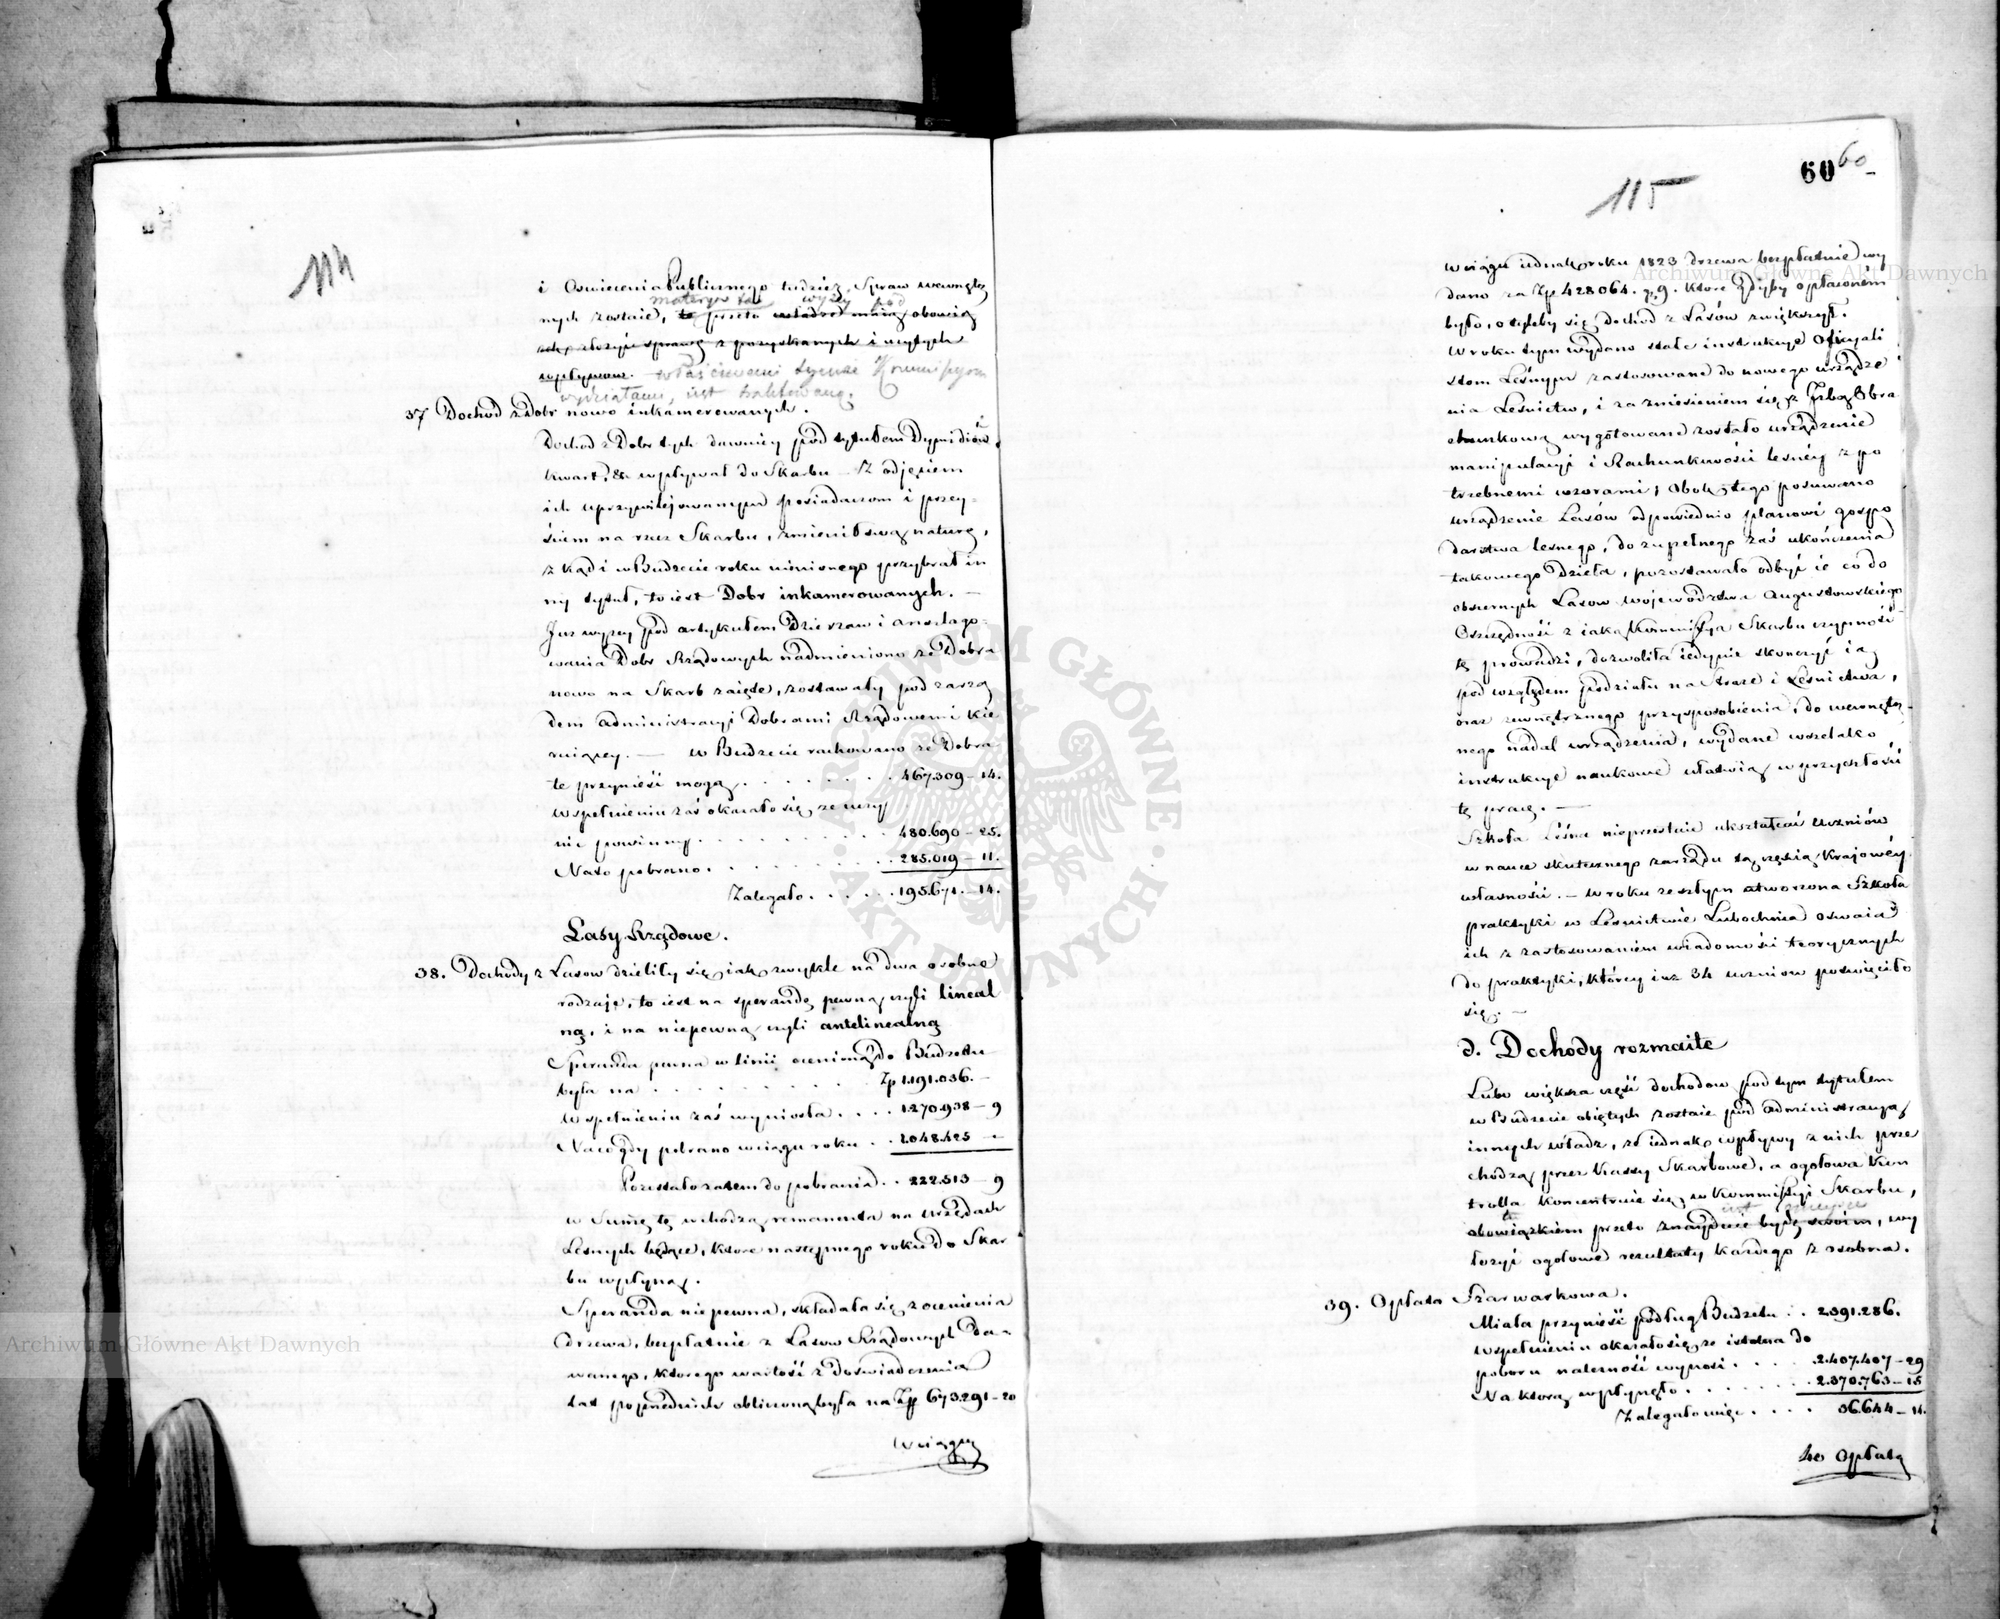 114
i Oswiecenia Publicznego tudzież Spraw wewnętrz
materya ta wyżey pod
nych zostaie, to przeto władze maią obowią
zek złożyć sprawę z pozyskanych i użytych
wpływow. właściwemi tymże Kommissyom
wydziałami, iest traktowaną.
37 Dochod z Dobr nowo inkamerowanych.
Dochod z Dobr tych dawniey pod tytułem Dypnidiów,
kwart, &c wpływał do Skarbu – Z odjęciem
ich uprzywilejowanym posiadaczom i przey-
ściem na rzecz Skarbu, zmienił swą naturę,
z kąd i w Budżecie roku minionego przybrał in
ny tytuł, to iest Dobr inkamerowanych. —
Juz wyzey pod artykułem Dzierzaw i
wania Dobr Rządowych nadmieniono ze Dobra
nowo na Skarb zaięte, zostawały pod zarzą
dem administracyi Dobrami Rządowemi kie
ruiącey. — w Budzecie rachowano ze Dobra
te przynieść mogą . . . . . . . 467.309 – 14.
w spełnieniu zaś okazało się ze uczy
nić powinny . . . . . . . . 480.690 – 25.
Na to pobrano . . . . . . . . 285.019 – 11.
Zalegało . . . . . 195.671. – 14.
Lasy Rządowe.
38. Dochody z Lasow dzieliły się iak zwykle na dwa osobne
rodzaje, to iest na sperandę pewną czyli lineal
ną, i na niepewną czyli antelinealną
Speranda pewna w linii oceniona do Budzetu
była na . . . . . . . . Zp 1.191.036. –
w spełnieniu zaś wyniosła . . . . 1.270.938 – 9
Na co gdy pobrano w ciągu roku . . 1.048.425 –
Pozostało zatem do pobrania . . 222.513 – 9
w Summę tę wchodzą remanenta na Urzędach
Leśnych będące, ktore następnego roku do Skar
bu wpłyną.
Speranda niepewna, składała się z ocenienia
drzewa, bezpłatnie z Lasow Rządowych da-
wanego, ktorego wartość z doświadczenia
lat poprzednich obliczoną była na Zp 673.291 – 20
w ciągu
115
60 60
w ciągu iednak roku 1823 drzewa bezpłatnie wy
dano za Zp 428064. gr 9. ktore gdyby opłaconem
było, o tyleby się dochod z Lasów zwiększył.
W roku tym wydano stałe instrukcye Oficyali
stom Leśnym zastosowane do nowego urządze
nia Leśnictw, i za zniesieniem się z Izbą Obra
chunkową wygotowane zostało urządzenie
manipulacyi i Rachunkowości leśnéy z po
trzebnemi wzorami; Obok tego posuwano
urządzenie Lasów odpowiednio planowi gospo
darstwa lesnego, do zupełnego zaś ukończenia
takowego Dzieła, pozostawało odbyć ie co do
obszernych Lasow Wojewodztwa Augustowskiego
Oszczędność z iaką Kommissya Skarbu czynność
tę prowadzi, dozwoliła iedynie skonczyć ią
pod względem podziału na Straże i Leśnictwa,
oraz zewnętrznego przysposobienia, do wewnętrz
nego nadal urządzenia, wydane wszelako
instrukcye naukowe ułatwią w przyszłości
tę pracę. —
Szkoła Leśna nieprzestaie ukształcać Uczniów
w nauce skutecznego zarządu tą częścią Krajowéy
własności. – W roku zeszłym otworzona Szkoła
praktyki w Leśnictwie Lubochnia oswaia
ich z zastosowaniem wiadomości teorycznych
do praktyki, któréy iuż 34 uczniow poświęciło
się. —
d. Dochody rozmaite
Lubo większa część dochodow pod tym tytułem
w Budzecie obiętych zostaie pod administracyą
innych władz, ze iednak wpływy z nich prze
chodzą przez kassy Skarbowe, a ogołowa Kon
trolla koncentruie się w Kommissyi Skarbu,
tu iest
obowiązkiem przeto znayduie być swoim, wy
łożyć ogołowe rezultaty kazdego z osobna.
39. Opłata Szarwarkowa.
Miała przynieść podług Budzetu . . 2.391.286.
w spełnieniu okazało się ze istotna do
poboru należność wynosi . . . . . 2.407.407 – 29
Na ktorą wpłynęło . . . . . . . 2.370.763 – 15
Zalegało więc . . . . 36.644 – 14.
40 Opłata
ARCHIWUM GŁÓWNE AKT DAWNYCH
Archiwum Główne Akt Dawnych
Archiwum Główne Akt Dawnych